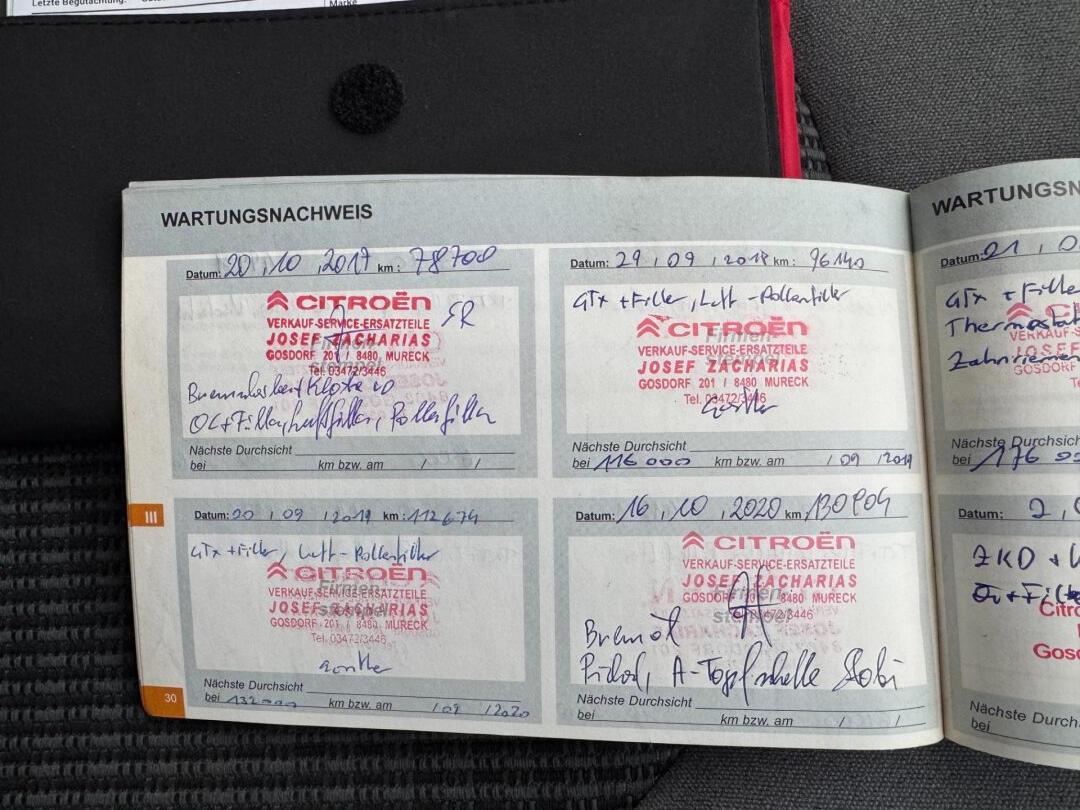 Letzte Begutachtung:
Marke
WARTUNGSNACHWEIS
Datum: 20 , 10 , 2017 km : 78700
CITROËN
VERKAUF-SERVICE-ERSATZTEILE
JOSEF ZACHARIAS
GOSDORF 201 / 8480 MURECK
Tel. 03472/3446
Nächste Durchsicht
bei km bzw. am / /
Datum: 29 / 09 / 2018 km : 96140
GTX + Filter, Luft - Pollenfilter
CITROËN
Firmen-
stempel
VERKAUF-SERVICE-ERSATZTEILE
JOSEF ZACHARIAS
GOSDORF 201 / 8480 MURECK
Tel. 03472/3446
Nächste Durchsicht
bei 116 000 km bzw. am / 09 / 2019
III
Datum: 20 , 09 , 2019 km : 112674
GTX + Filter, Luft - Pollenfilter
CITROËN
Firmen-
stempel
VERKAUF-SERVICE-ERSATZTEILE
JOSEF ZACHARIAS
GOSDORF 201 / 8480 MURECK
Tel. 03472/3446
Nächste Durchsicht
bei 132 000 km bzw. am / 09 / 2020
30
Datum: 16 , 10 , 2020 km
CITROËN
VERKAUF-SERVICE-ERSATZTEILE
JOSEF ZACHARIAS
GOSDORF 201 / 8480 MURECK
Firmen-
stempel
Nächste Durchsicht
bei km bzw. am / /
WARTUNGSN
Datum: 21
GTX + Filte
Zahnriemen
Nächste Durchsicht
bei 176
Datum: 2
ZKD +
+ Filte
Citro
Gosd
Nächste Durch
bei